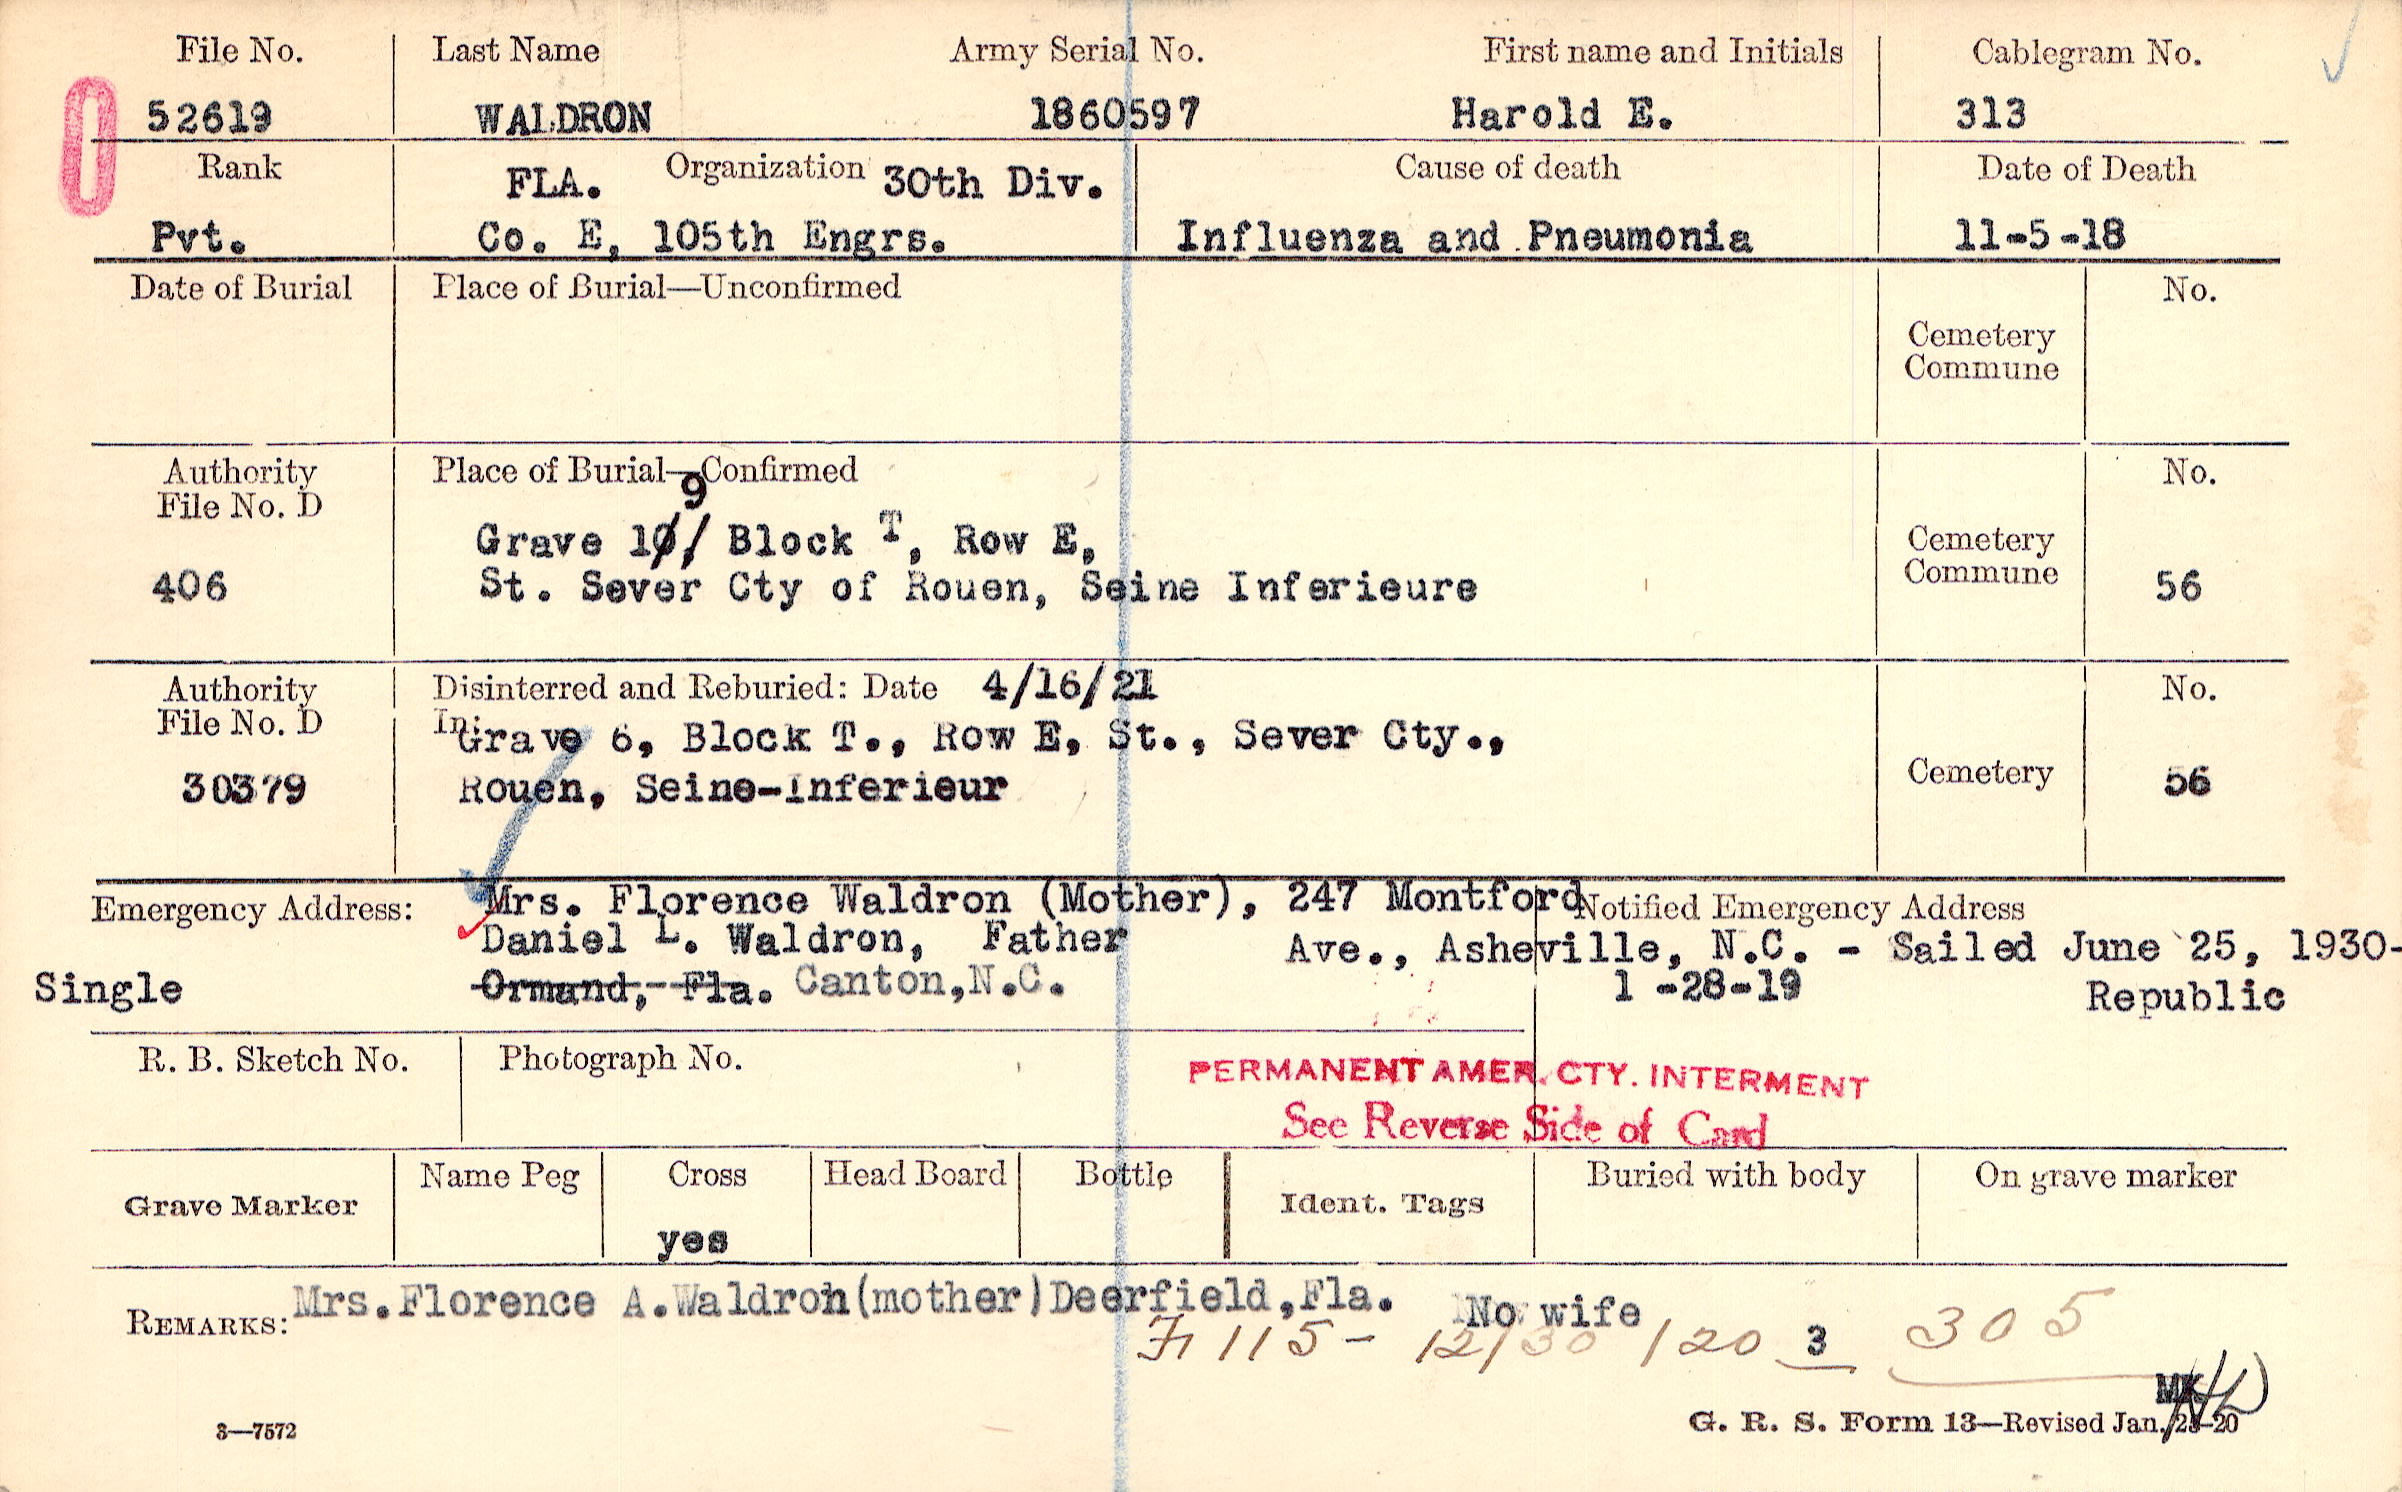 File No. Last Name Army Serial No. First name and Initials Cablegram No.
52619 WALDRON 1860597 Harold E. 313
Rank FLA. Organization 30th Div. Cause of death Date of Death
Pvt. Co. E, 105th Engrs. Influenza and Pneumonia 11-5-18
Date of Burial Place of Burial—Unconfirmed No.
Cemetery
Commune
Authority Place of Burial—Confirmed No.
File No. D 9
Grave 10, Block T, Row E, Cemetery
406 St. Sever Cty of Rouen, Seine Inferieure Commune 56
Authority Disinterred and Reburied: Date 4/16/21 No.
File No. D In: Grave 6, Block T., Row E, St., Sever Cty.,
30379 Rouen, Seine-Inferieur Cemetery 56
Emergency Address: Mrs. Florence Waldron (Mother), 247 Montford Notified Emergency Address
Daniel L. Waldron, Father Ave., Asheville, N.C. - Sailed June 25, 1930-
Single Ormand, Fla. Canton,N.C. 1-28-19 Republic
R. B. Sketch No. Photograph No. PERMANENT AMER. CTY. INTERMENT
See Reverse Side of Card
Grave Marker Name Peg Cross Head Board Bottle Ident. Tags Buried with body On grave marker
yes
REMARKS: Mrs.Florence A.Waldron(mother)Deerfield,Fla. No wife
115- 12/30/20 3 305
MK
3—7572 G. R. S. Form 13—Revised Jan. 23-20